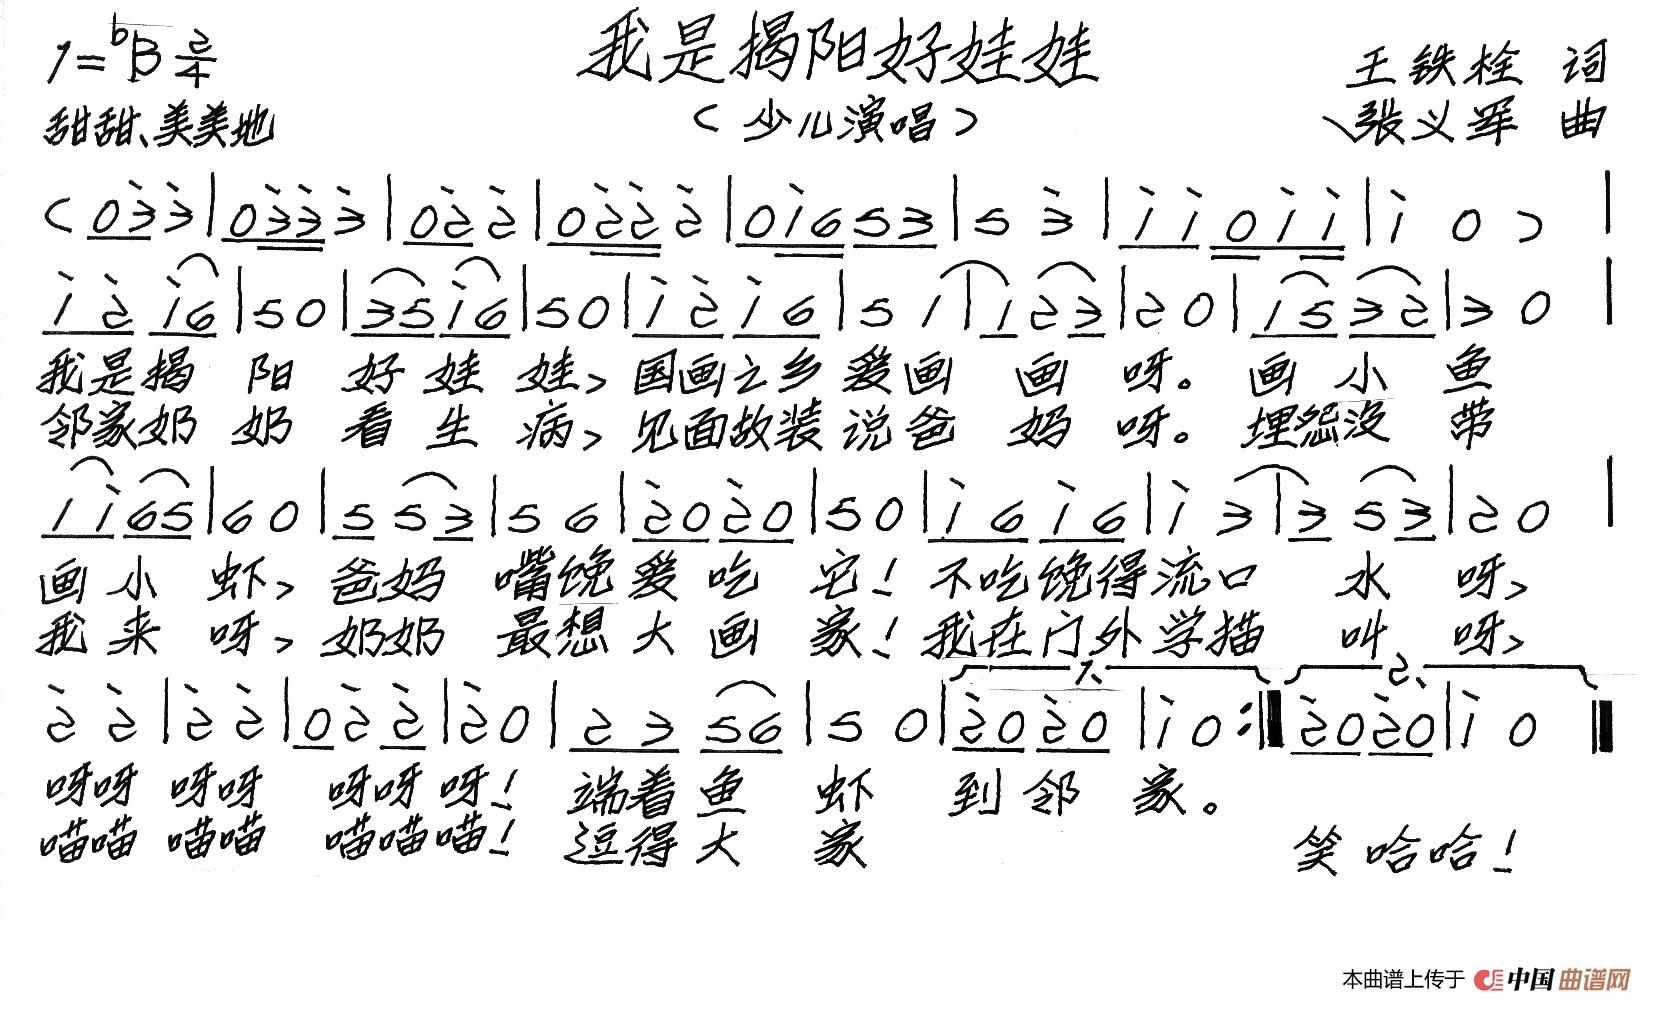 我是揭阳好娃娃
1=♭B 2/4
王铁栓 词
甜甜、美美地
（少儿演唱）
张义军 曲
(0 3̇ 3̇ | 0 3̇ 3̇ 3̇ | 0 2̇ 2̇ | 0 2̇ 2̇ 2̇ | 0 1̇ 6 5 3 | 5 3̇ | 1̇ 1̇ 0 1̇ 1̇ | 1̇ 0 ) |
1̇ 2̇ 1̇ 6 | 5 0 | 3 5 1̇ 6 | 5 0 | 1̇ 2̇ 1̇ 6 | 5 1 | 1 2 3 | 2 0 | 1 5 3 2 | 3 0 |
我是揭 阳 好 娃 娃、国画之乡 爱画 画 呀。画 小 鱼
邻家奶 奶 看 生 病、见面故装 说爸 妈 呀。埋怨没 带
1 1̇ 6 5 | 6 0 | 5 5 3 | 5 6 | 2̇ 0 2̇ 0 | 5 0 | 1̇ 6 1̇ 6 | 1̇ 3 | 3 5 3 | 2 0 |
画 小 虾、爸妈 嘴馋 爱 吃 它！不吃馋得流口 水 呀、
我 来 呀、奶奶 最想 大 画 家！我在门外学描 叫 呀、
1. 2.
2̇ 2̇ | 2̇ 2̇ | 0 2̇ 2̇ | 2̇ 0 | 2 3 5 6 | 5 0 | 2̇ 0 2̇ 0 | 1̇ 0 :‖ 2̇ 0 2̇ 0 | 1̇ 0 ‖
呀呀 呀呀 呀呀 呀！端着 鱼 虾 到 邻 家。
喵喵 喵喵 喵喵喵！逗得 大 家 笑 哈哈！
本曲谱上传于 中国曲谱网